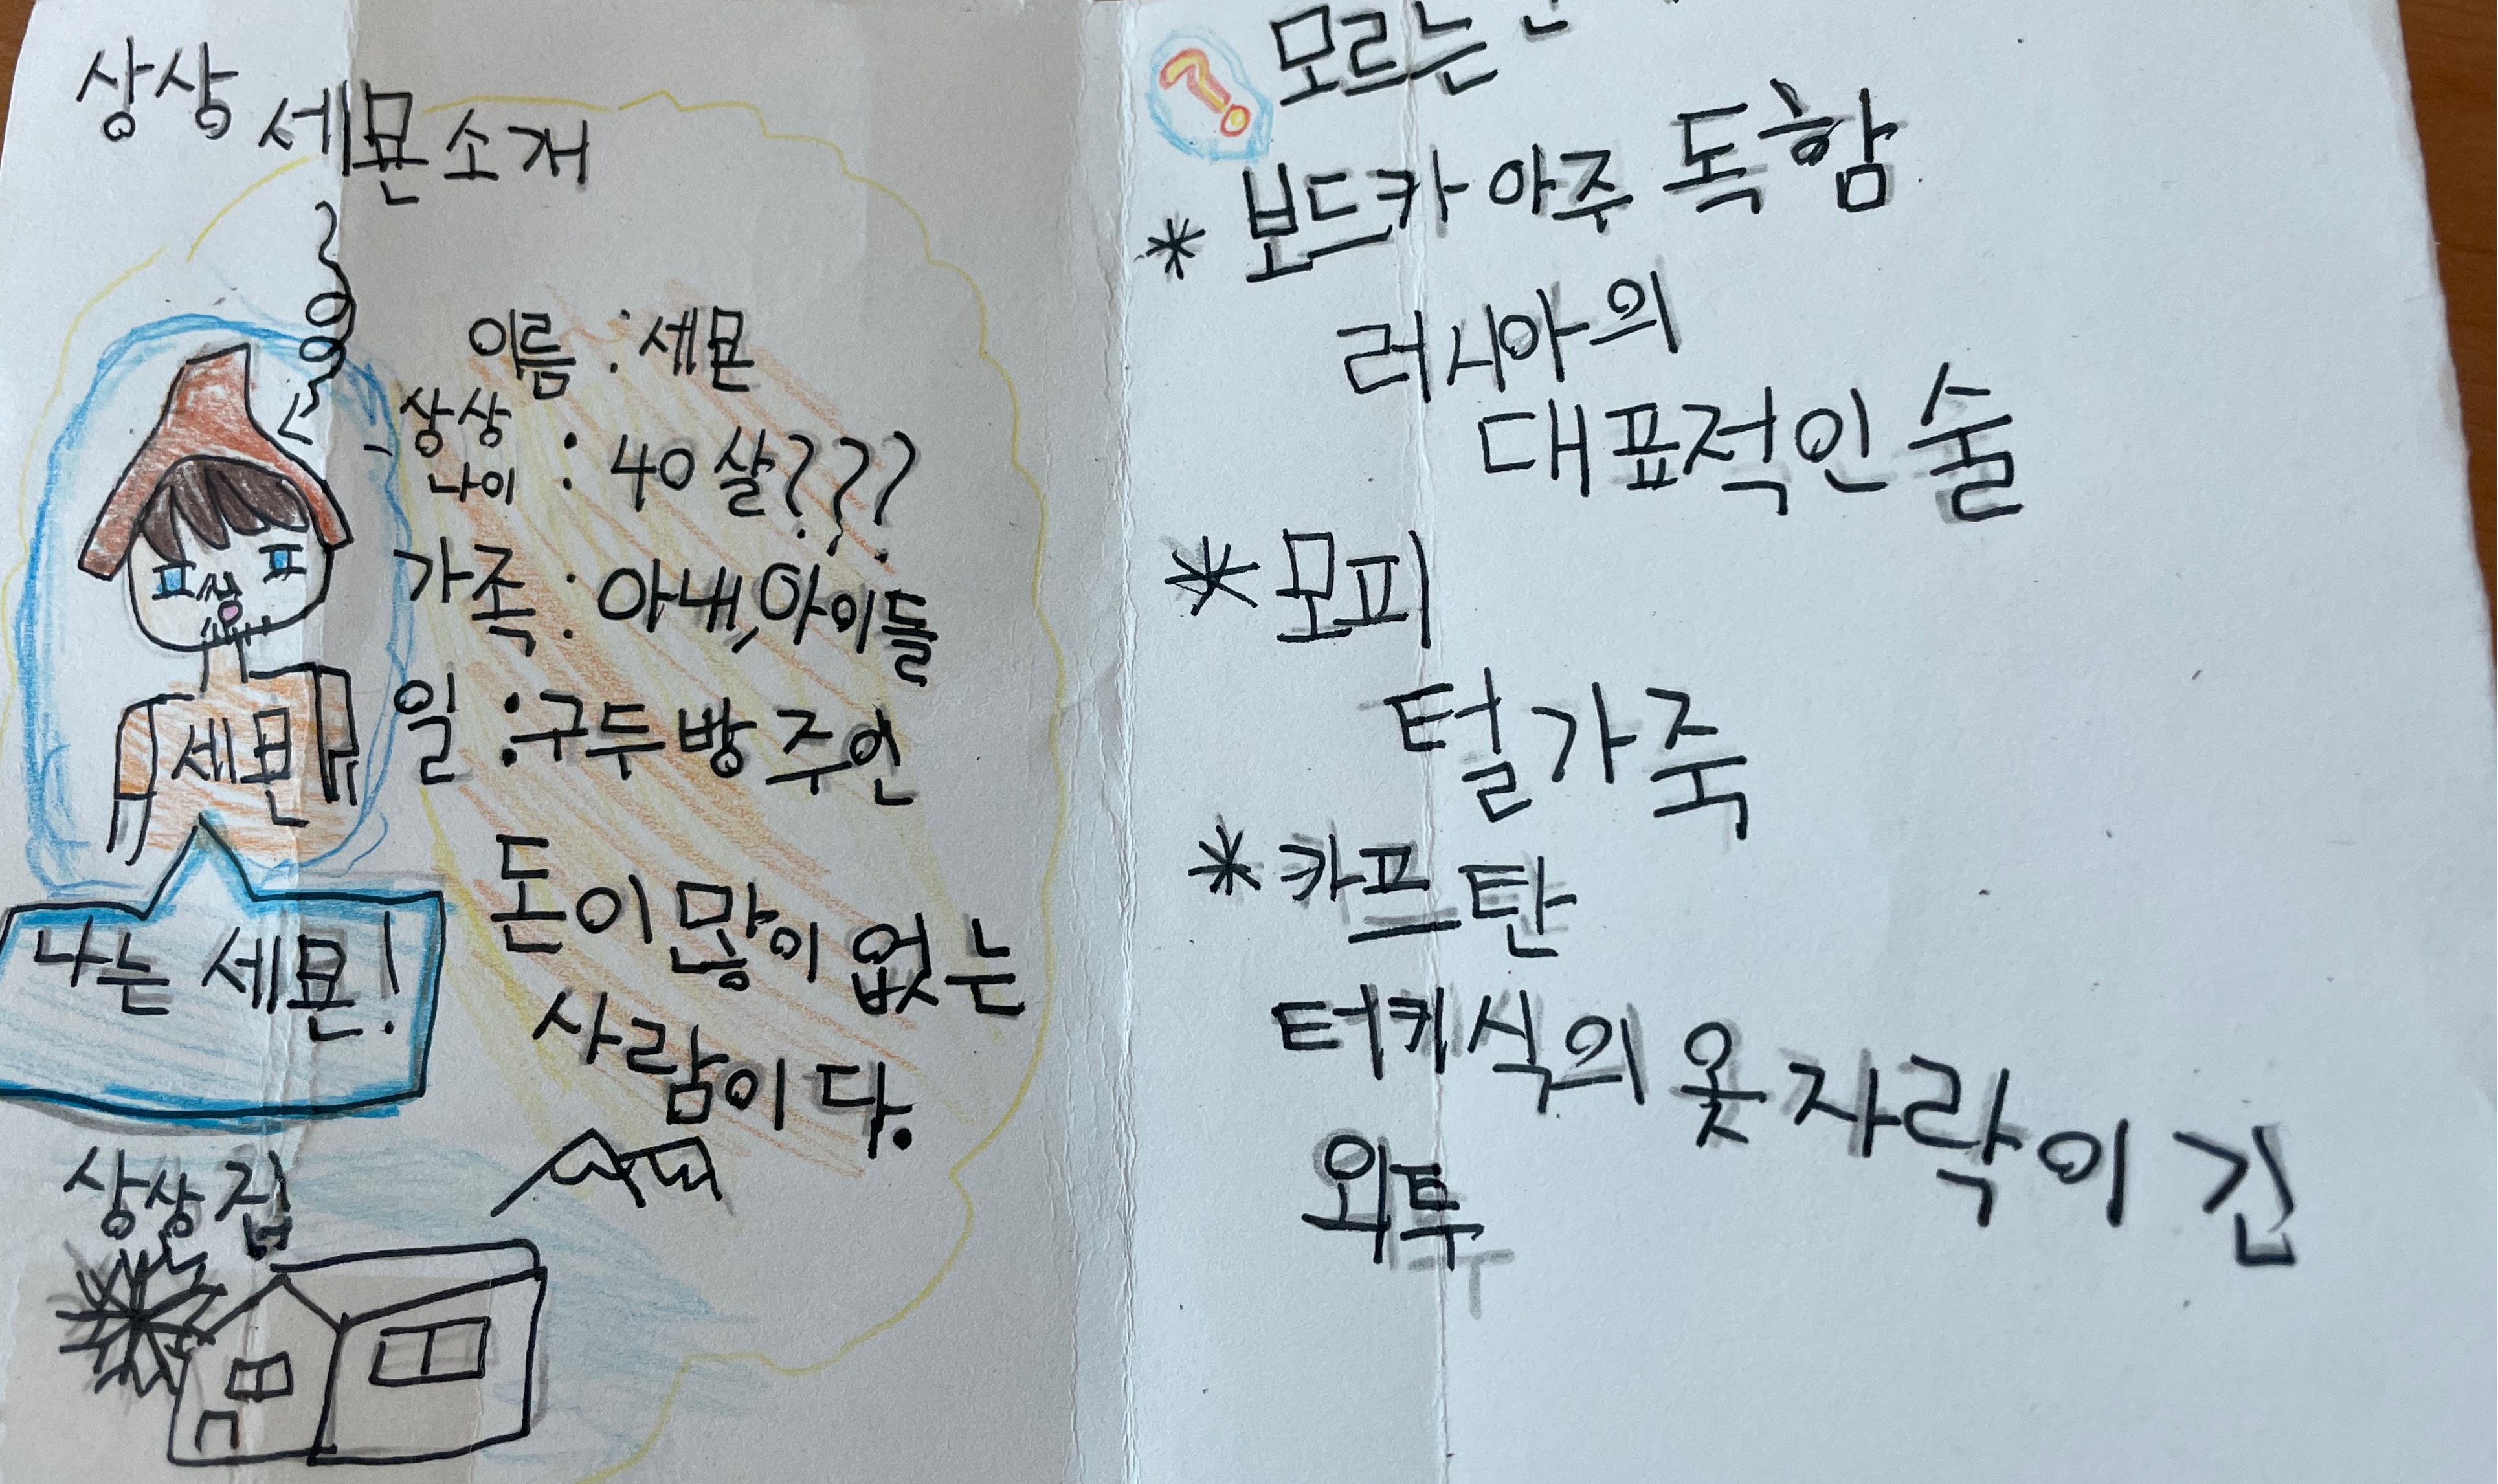 상상 세묜소개
이름 : 세묜
상상
나이 : 40살???
가족 : 아내, 아이들
일 : 구두방 주인
돈이 많이 없는
사람이다.
세묜
나는 세묜!
상상집
? 모르는
* 보드카 아주 독함
러시아의
대표적인 술
* 모피
털가죽
* 카프탄
터키식의 옷자락이 긴
외투